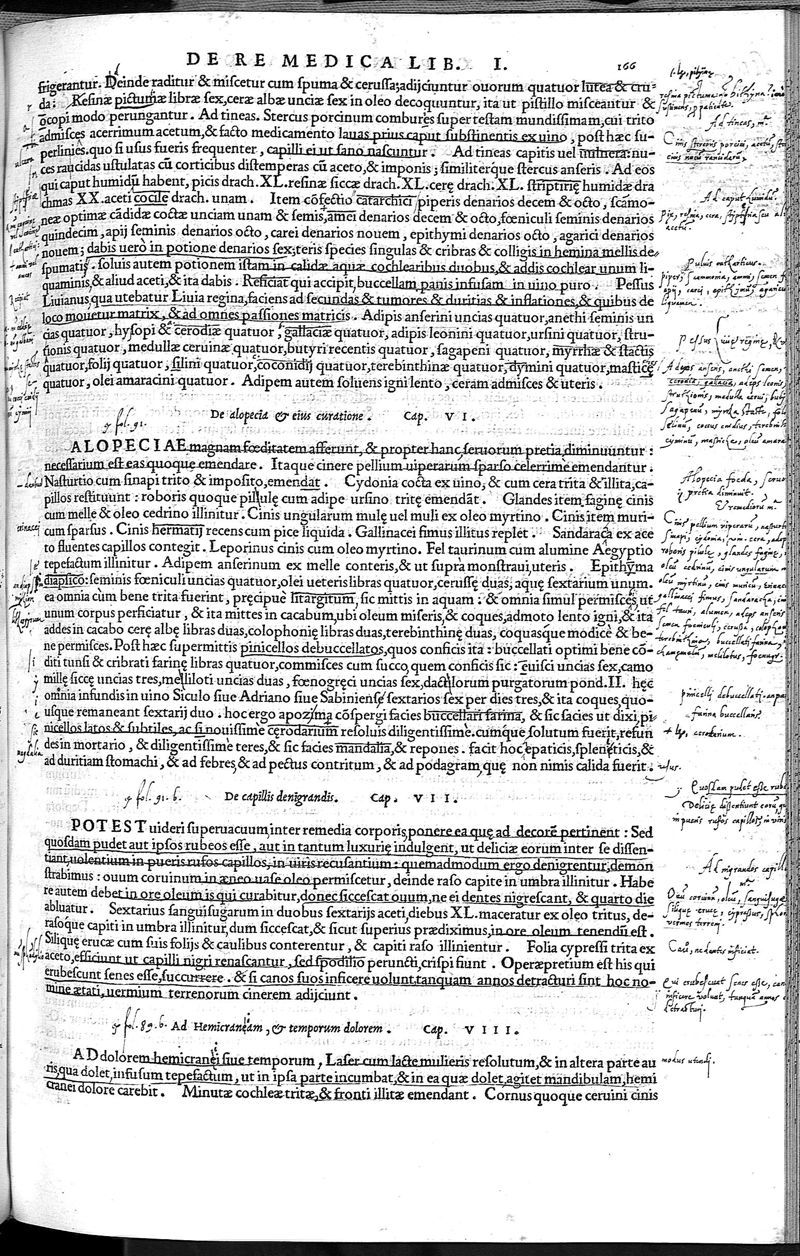 DE RE MEDICA LIB. I. 166
frigerantur. Deinde raditur & miscetur cum spuma & cerussa; adijciuntur ovorum quatuor lutea & cru-
da. Resinæ pictumæ libræ sex, ceræ albæ unciæ sex in oleo decoquuntur, ita ut pistillo misceantur &
ocopi modo perungantur. Ad tineas. Stercus porcinum combures super testam mundissimam, cui trito
admisces acerrimum acetum, & facto medicamento lauas prius caput substinentis ex uino, post hæc su-
perlinies. quo si usus fueris frequenter, capilli ei ut sano nascuntur. Ad tineas capitis uel uulnera: nu-
ces raucidas ustulatas cū corticibus distemperas cū aceto, & imponis; similiterque stercus anseris. Ad eos
qui caput humidū habent, picis drach. XL. resinæ siccæ drach. XL. cerę drach. XL. striptirię humidæ dra
chmas XX. aceti cocile drach. unam. Item cōfectio catarchici piperis denarios decem & octo, scāmo-
neæ optimæ cādidæ coctæ unciam unam & semis, amei denarios decem & octo, fœniculi seminis denarios
quindecim, apij seminis denarios octo, carei denarios nouem, epithymi denarios octo, agarici denarios
nouem; dabis uerò in potione denarios sex; teris species singulas & cribras & colligis in hemina mellis de-
spumati. soluis autem potionem istam in calidæ aquæ cochlearibus duobus, & addis cochlear unum li-
quaminis, & aliud aceti, & ita dabis. Reficiat qui accipit, buccellam panis infusam in uino puro. Pessus
Liuianus, qua utebatur Liuia regina, faciens ad secundas & tumores & duritias & inflationes, & quibus de
loco mouetur matrix, & ad omnes passiones matricis. Adipis anserini uncias quatuor, anethi seminis un
cias quatuor, hysopi & cerodiæ quatuor, gallaciæ quatuor, adipis leonini quatuor, ursini quatuor, stru-
tionis quatuor, medullæ ceruinæ quatuor, butyri recentis quatuor, sagapeni quatuor, myrrhæ & stactis
quatuor, folij quatuor, silini quatuor, coconidij quatuor, terebinthinæ quatuor, dymini quatuor, mastice
quatuor, olei amaracini quatuor. Adipem autem soluens igni lento, ceram admisces & uteris.
De alopecia & eius curatione. Cap. VI.
ALOPECIAE magnam fœditatem afferunt, & propter hanc seruorum pretia diminuuntur:
necessarium est eas quoque emendare. Itaque cinere pellium uiperarum sparso celerrime emendantur.
Nasturtio cum sinapi trito & imposito, emendat. Cydonia cocta ex uino, & cum cera trita & illita, ca-
pillos restituunt: roboris quoque pillulę cum adipe ursino tritę emendāt. Glandes item faginę cinis
cum melle & oleo cedrino illinitur. Cinis ungularum mulę uel muli ex oleo myrtino. Cinis item muri-
cum sparsus. Cinis hermatij recens cum pice liquida. Gallinacei fimus illitus replet. Sandaraca ex ace
to fluentes capillos contegit. Leporinus cinis cum oleo myrtino. Fel taurinum cum alumine Aegyptio
tepefactum illinitur. Adipem anserinum ex melle conteris, & ut supra monstraui, uteris. Epithyma
diaplico: seminis fœniculi uncias quatuor, olei ueteris libras quatuor, cerussę duas, aquę sextarium unum.
ea omnia cùm bene trita fuerint, pręcipuè litargitum, sic mittis in aquam: & omnia simul permisces, ut
unum corpus perficiatur, & ita mittes in cacabum, ubi oleum miseris, & coques, admoto lento igni, & ita
addes in cacabo cerę albę libras duas, colophonię libras duas, terebinthinę duas, coquasque modicè & be-
ne permisces. Post hæc supermittis pinicellos debuccellatos, quos conficis ita: buccellati optimi bene cō-
diti tunsi & cribrati farinę libras quatuor, commisces cum succo, quem conficis sic: euisci uncias sex, camo
millę siccę uncias tres, melliloti uncias duas, fœnogręci uncias sex, dactilorum purgatorum pond. II. hęc
omnia infundis in uino Siculo siue Adriano siue Sabiniense sextarios sex per dies tres, & ita coques, quo-
usque remaneant sextarij duo. hoc ergo apozima cōspergi facies buccellari farina, & sic facies ut dixi, pi
nicellos latos & subtiles, ac si nouissime cerodarium resoluis diligentissime. cumque solutum fuerit, refun
des in mortario, & diligentissime teres, & sic facies mandalia, & repones. facit hoc epaticis, spleneticis, &
ad duritiam stomachi, & ad febres, & ad pectus contritum, & ad podagram, quę non nimis calida fuerit.
De capillis denigrandis. Cap. VII.
POTEST uideri superuacuum, inter remedia corporis, ponere ea quę ad decorē pertinent: Sed
quosdam pudet aut ipsos rubeos esse, aut in tantum luxurię indulgent, ut deliciæ eorum inter se dissen-
tiant, uolentium in pueris rufos capillos, in uiris recusantium: quemadmodum ergo denigrentur, demon
strabimus: ouum coruinum in æneo uase oleo permiscetur, deinde raso capite in umbra illinitur. Habe
re autem debet in ore oleum is qui curabitur, donec siccescat ouum, ne ei dentes nigrescant, & quarto die
abluatur. Sextarius sanguisugarum in duobus sextarijs aceti, diebus XL. maceratur ex oleo tritus, de-
rasoque capiti in umbra illinitur, dum siccescat, & sicut superius prædiximus, in ore oleum tenendū est.
Siliquę erucæ cum suis folijs & caulibus conterentur, & capiti raso illinientur. Folia cypressi trita ex
aceto, efficiunt ut capilli nigri renascantur, sed spodilio peruncti, crispi fiunt. Operæpretium est his qui
erubescunt senes esse, succurrere. & si canos suos inficere uolunt, tanquam annos detracturi sint hoc no-
mine ætati, uermium terrenorum cinerem adijciunt.
Ad Hemicraneam, & temporum dolorem. Cap. VIII.
AD dolorem hemicranei siue temporum, Laser cum lacte mulieris resolutum, & in altera parte au
ris, qua dolet, infusum tepefactum, ut in ipsa parte incumbat, & in ea quæ dolet, agitet mandibulam, hemi
cranei dolore carebit. Minutæ cochleæ tritæ, & fronti illitæ emendant. Cornus quoque ceruini cinis
Ad tineas
Ad caput humidū
Puluis catharticus
Alopecia foeda
Ad nigrandos capill
modus utendi